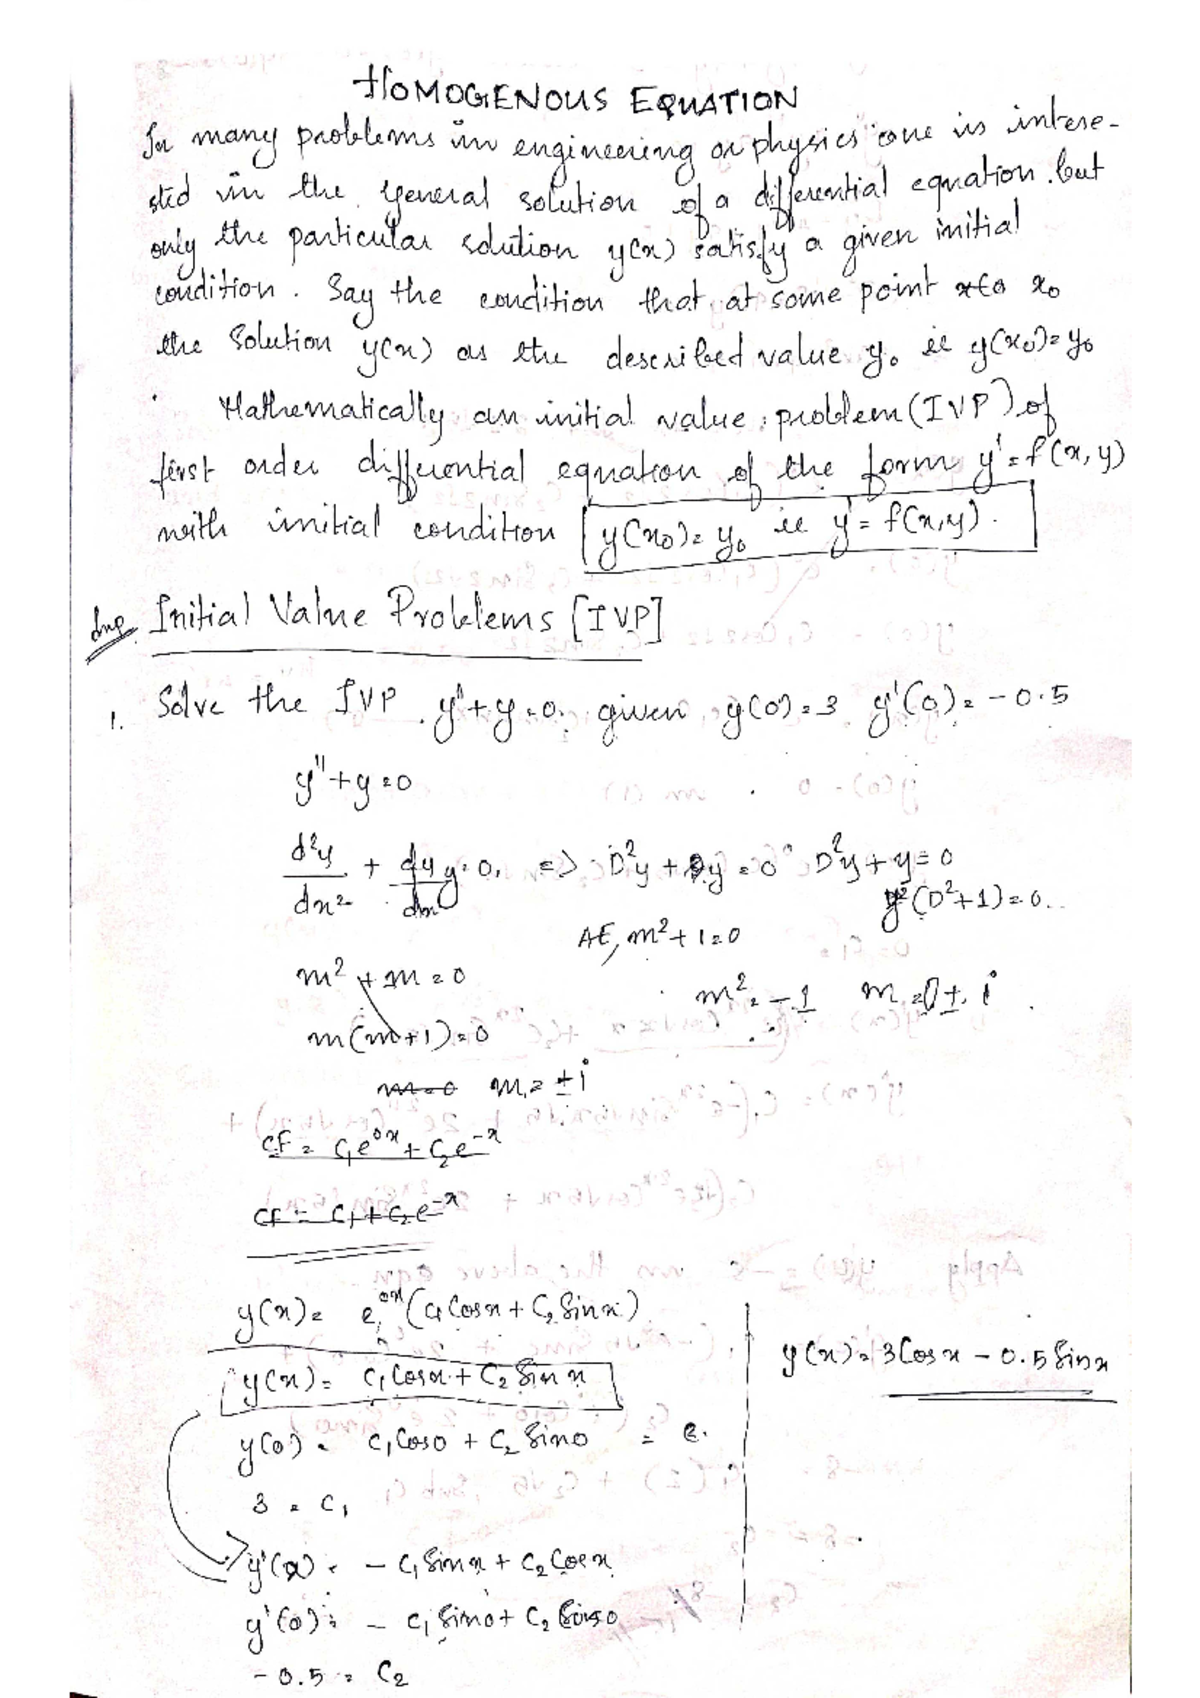 HOMOGENOUS EQUATION
In many problems in engineering or physics one is intere-
sted in the general solution of a differential equation but
only the particular solution y(x) satisfy a given initial
condition. Say the condition that at some point x₀
the Solution y(x) as the described value y₀ ie y(x₀)=y₀
Mathematically an initial value problem (IVP) of
first order differential equation of the form y'=f(x,y)
with initial condition y(x₀)=y₀ ie y'=f(x,y).
Imp. Initial Value Problems [IVP]
1. Solve the IVP y''+y=0. given y(0)=3 y'(0)=-0.5
y''+y=0
d²y/dx² + dy/dx y=0, => D²y + Dy = 0 D²y+y=0
y(D²+1)=0.
AE, m²+1=0
m²+m=0
m²=-1 m=0±i
m(m+1)=0
m=0 m=±i
CF = C₁e^0x + C₂e^-x
CF = C₁+C₂e^-x
y(x)= e^0x (C₁Cosx + C₂Sinx)
y(x)= C₁Cosx + C₂Sinx
y(x)=3Cosx - 0.5Sinx
y(0) = C₁Cos0 + C₂Sin0
3 = C₁
y'(x) = -C₁Sinx + C₂Cosx
y'(0) = -C₁Sin0 + C₂Cos0
-0.5 = C₂